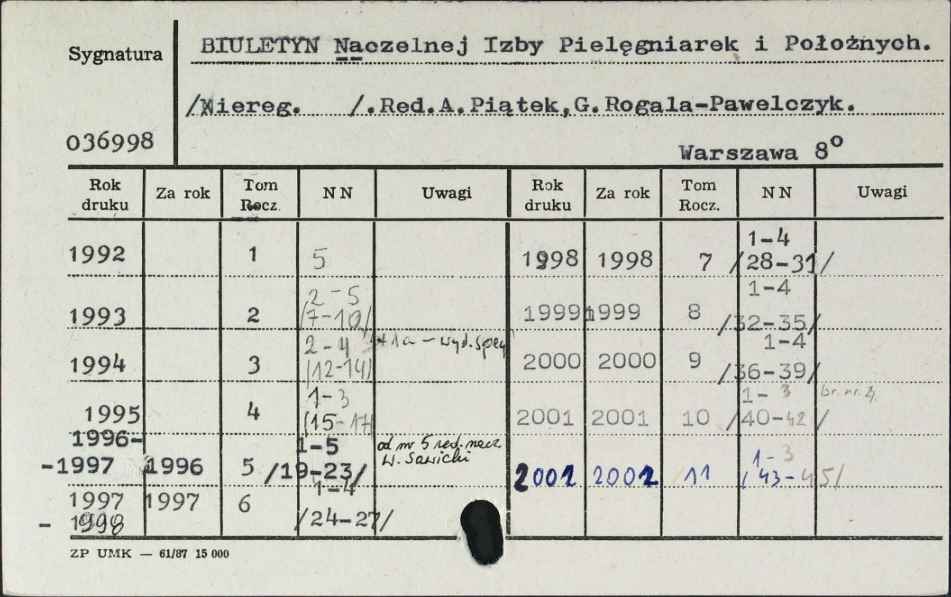 Sygnatura
BIULETYN Naczelnej Izby Pielęgniarek i Położnych.
/Niereg. /.Red.A.Piątek,G.Rogala-Pawelczyk.
036998
Warszawa 8°
Rok druku Za rok Tom Rocz. NN Uwagi Rok druku Za rok Tom Rocz. NN Uwagi
1992 1 5
1993 2 2-5 /7-10/
1994 3 2-4 /12-14/ + 1a - wyd. spec
1995 4 1-3 /15-17/
1996-
-1997 1996 5 1-5 /19-23/ od nr 5 red. nacz W. Sawicki
1997
- 1998 1997 6 1-4 /24-27/
1998 1998 7 1-4 /28-31/
1999 1999 8 1-4 /32-35/
2000 2000 9 1-4 /36-39/
2001 2001 10 1-3 /40-42 / br. nr
2002 2002 11 1-3 /43-45/
ZP UMK — 61/87 15 000